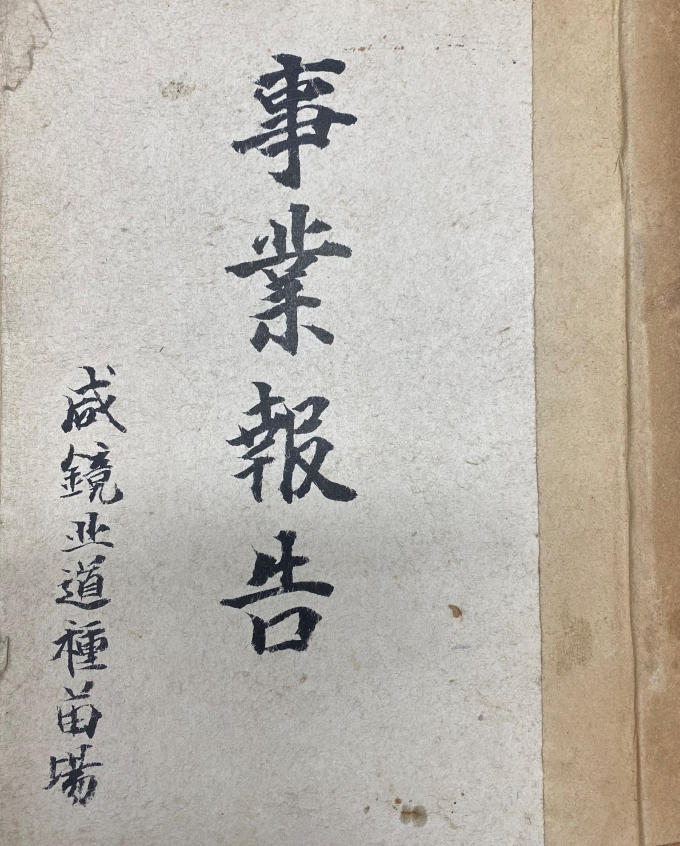 事業報告
咸鏡北道種苗場